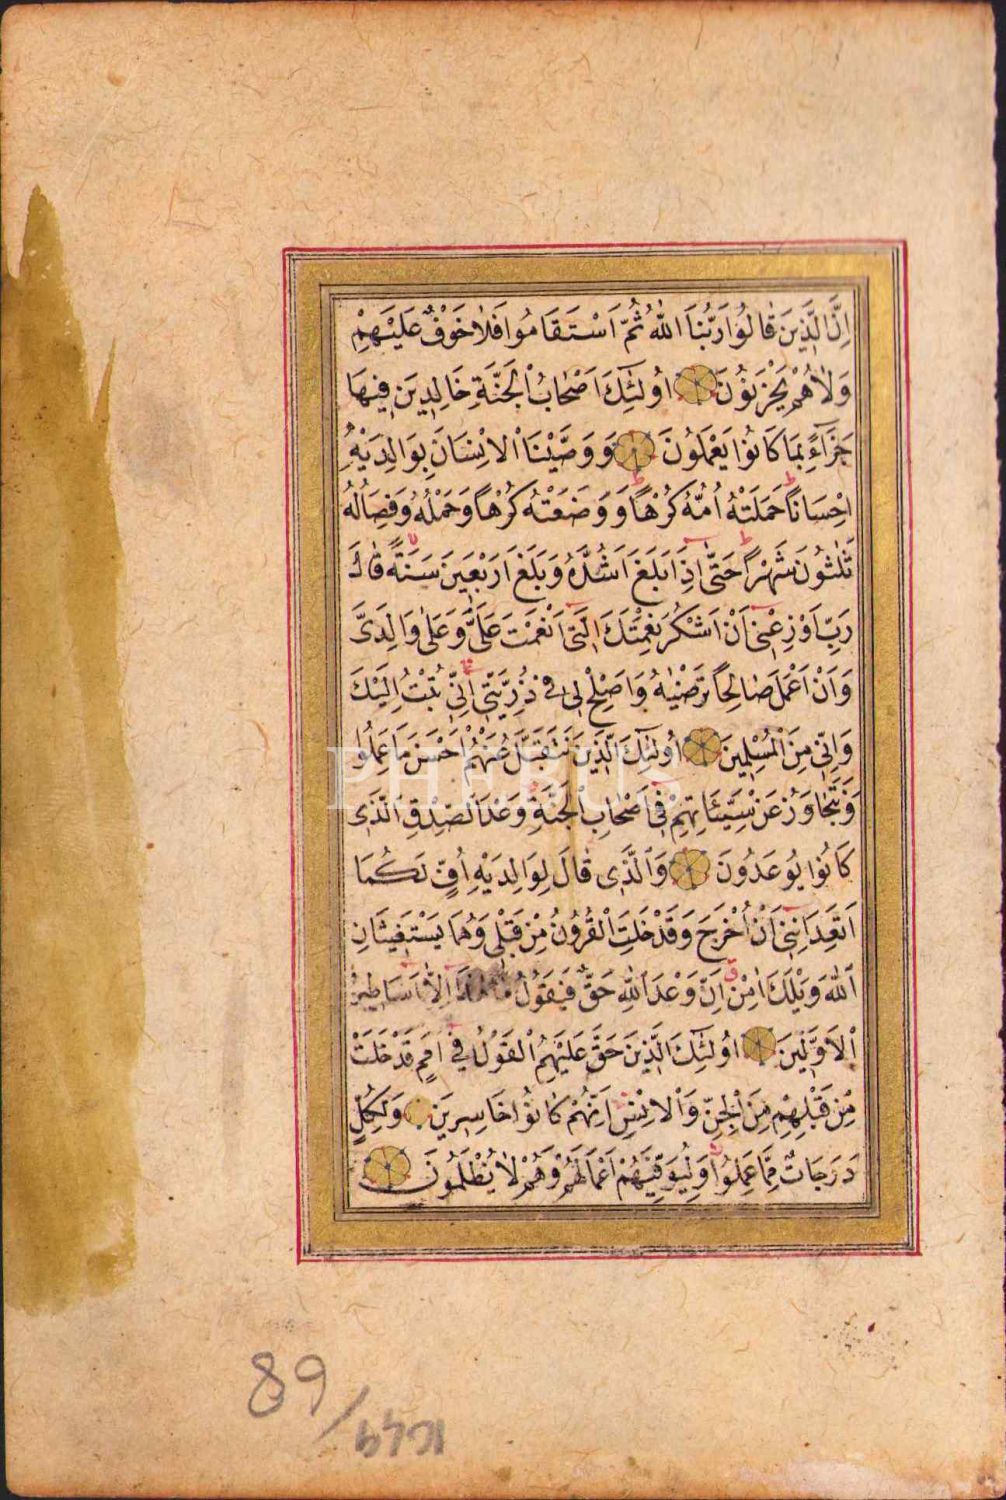 اِنَّ الَّذِينَ قَالُوا رَبُّنَا اللّٰهُ ثُمَّ اسْتَقَامُوا فَلَا خَوْفٌ عَلَيْهِمْ
وَلَا هُمْ يَحْزَنُونَ اُولٰئِكَ اَصْحَابُ الْجَنَّةِ خَالِدِينَ فِيهَا
جَزَاءً بِمَا كَانُوا يَعْمَلُونَ وَوَصَّيْنَا الْاِنْسَانَ بِوَالِدَيْهِ
اِحْسَانًا حَمَلَتْهُ اُمُّهُ كُرْهًا وَوَضَعَتْهُ كُرْهًا وَحَمْلُهُ وَفِصَالُهُ
ثَلٰثُونَ شَهْرًا حَتّٰى اِذَا بَلَغَ اَشُدَّهُ وَبَلَغَ اَرْبَعِينَ سَنَةً قَالَ
رَبِّ اَوْزِعْنِى اَنْ اَشْكُرَ نِعْمَتَكَ الَّتِى اَنْعَمْتَ عَلَىَّ وَعَلٰى وَالِدَىَّ
وَاَنْ اَعْمَلَ صَالِحًا تَرْضٰيهُ وَاَصْلِحْ لِى فِى ذُرِّيَّتِى اِنِّى تُبْتُ اِلَيْكَ
وَاِنِّى مِنَ الْمُسْلِمِينَ اُولٰئِكَ الَّذِينَ نَتَقَبَّلُ عَنْهُمْ اَحْسَنَ مَا عَمِلُوا
وَنَتَجَاوَزُ عَنْ سَيِّئَاتِهِمْ فِى اَصْحَابِ الْجَنَّةِ وَعْدَ الصِّدْقِ الَّذِى
كَانُوا يُوعَدُونَ وَالَّذِى قَالَ لِوَالِدَيْهِ اُفٍّ لَكُمَا
اَتَعِدَانِنِى اَنْ اُخْرَجَ وَقَدْ خَلَتِ الْقُرُونُ مِنْ قَبْلِى وَهُمَا يَسْتَغِيثَانِ
اللّٰهَ وَيْلَكَ اٰمِنْ اِنَّ وَعْدَ اللّٰهِ حَقٌّ فَيَقُولُ مَا هٰذَا اِلَّا اَسَاطِيرُ
الْاَوَّلِينَ اُولٰئِكَ الَّذِينَ حَقَّ عَلَيْهِمُ الْقَوْلُ فِى اُمَمٍ قَدْ خَلَتْ
مِنْ قَبْلِهِمْ مِنَ الْجِنِّ وَالْاِنْسِ اِنَّهُمْ كَانُوا خَاسِرِينَ وَلِكُلٍّ
دَرَجَاتٌ مِمَّا عَمِلُوا وَلِيُوَفِّيَهُمْ اَعْمَالَهُمْ وَهُمْ لَا يُظْلَمُونَ
PHEBUS
89/